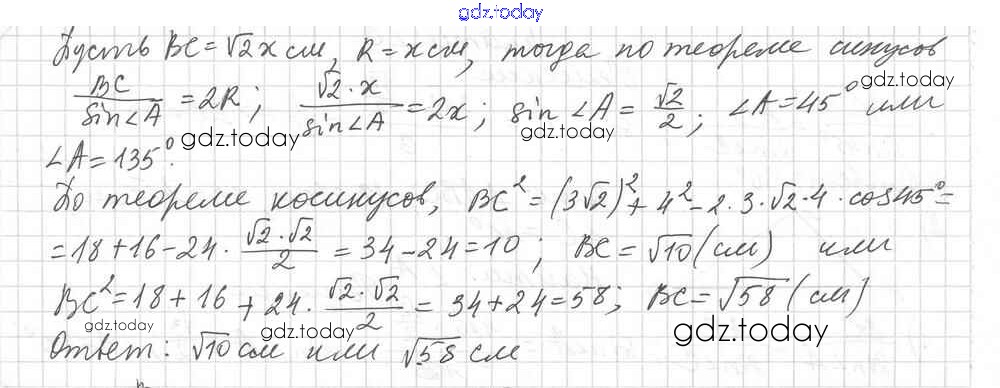 gdz.today
Пусть BC = √2x см, R = x см, тогда по теореме синусов
gdz.today
BC/sin∠A = 2R; √2·x/sin∠A = 2x; sin∠A = √2/2; ∠A = 45° или
gdz.today gdz.today
∠A = 135°.
По теореме косинусов, BC² = (3√2)² + 4² - 2·3·√2·4·cos45° =
= 18 + 16 - 24 · √2·√2/2 = 34 - 24 = 10; BC = √10 (см) или
BC² = 18 + 16 + 24 · √2·√2/2 = 34 + 24 = 58; BC = √58 (см)
gdz.today gdz.today gdz.today
Ответ: √10 см или √58 см